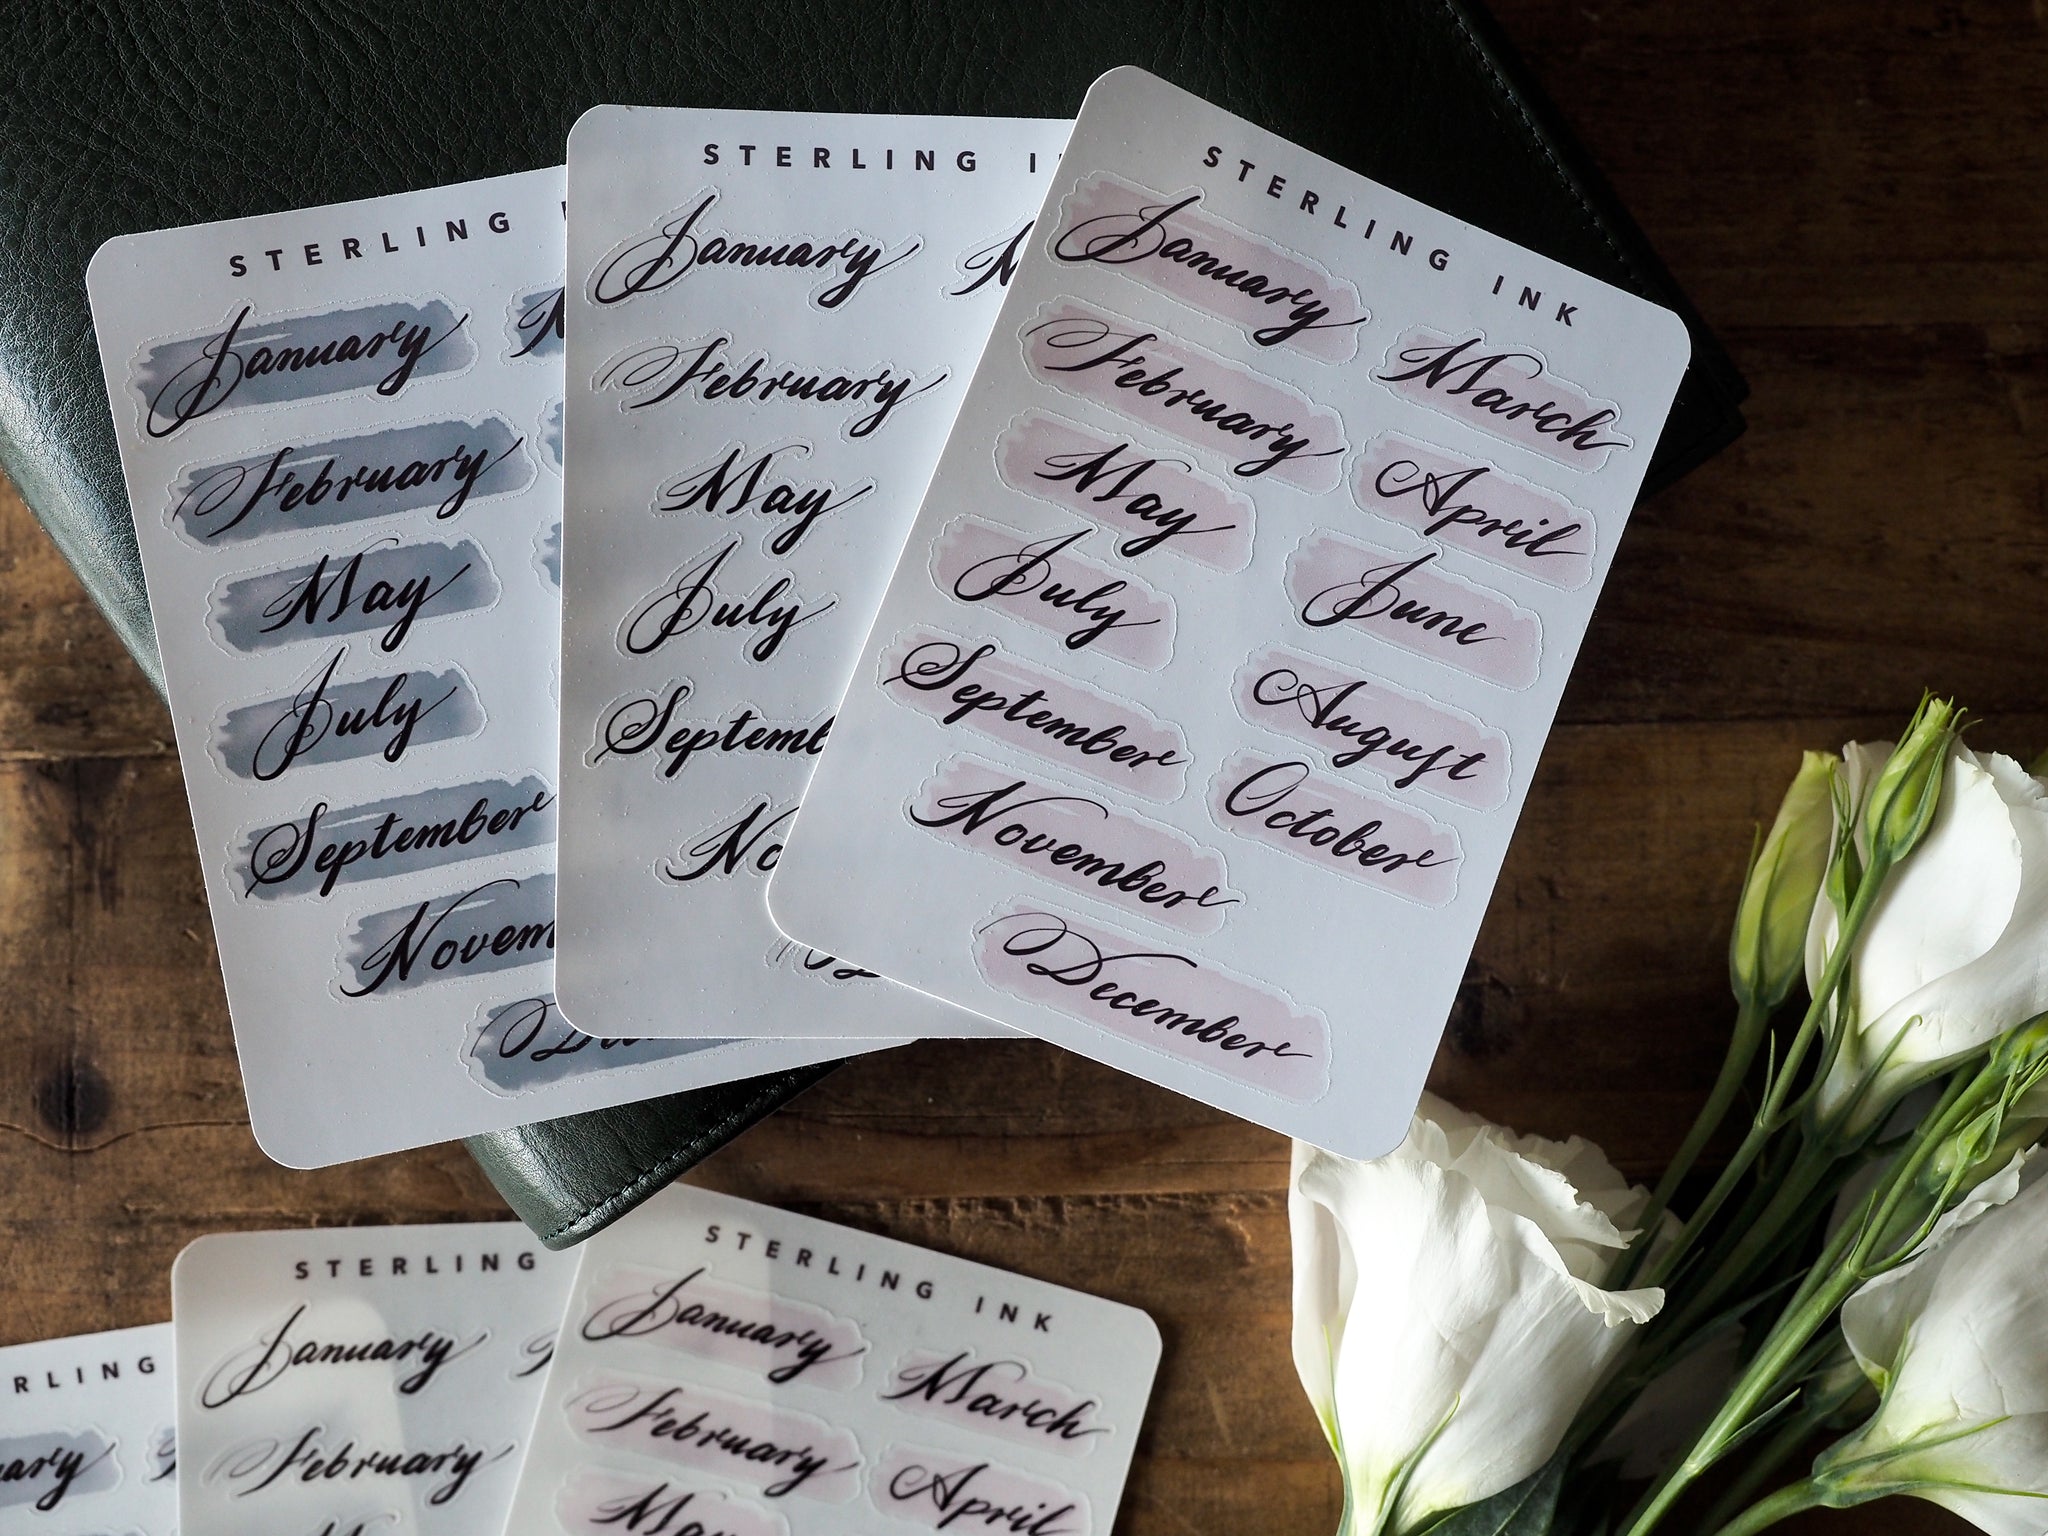 STERLING
January
February
May
July
September
Novem
STERLING I
January
February
May
July
Septemb
No
STERLING INK
January
March
February
April
May
June
July
August
September
October
November
December
RLING
ary
STERLING
January
February
STERLING INK
January
March
February
April
May